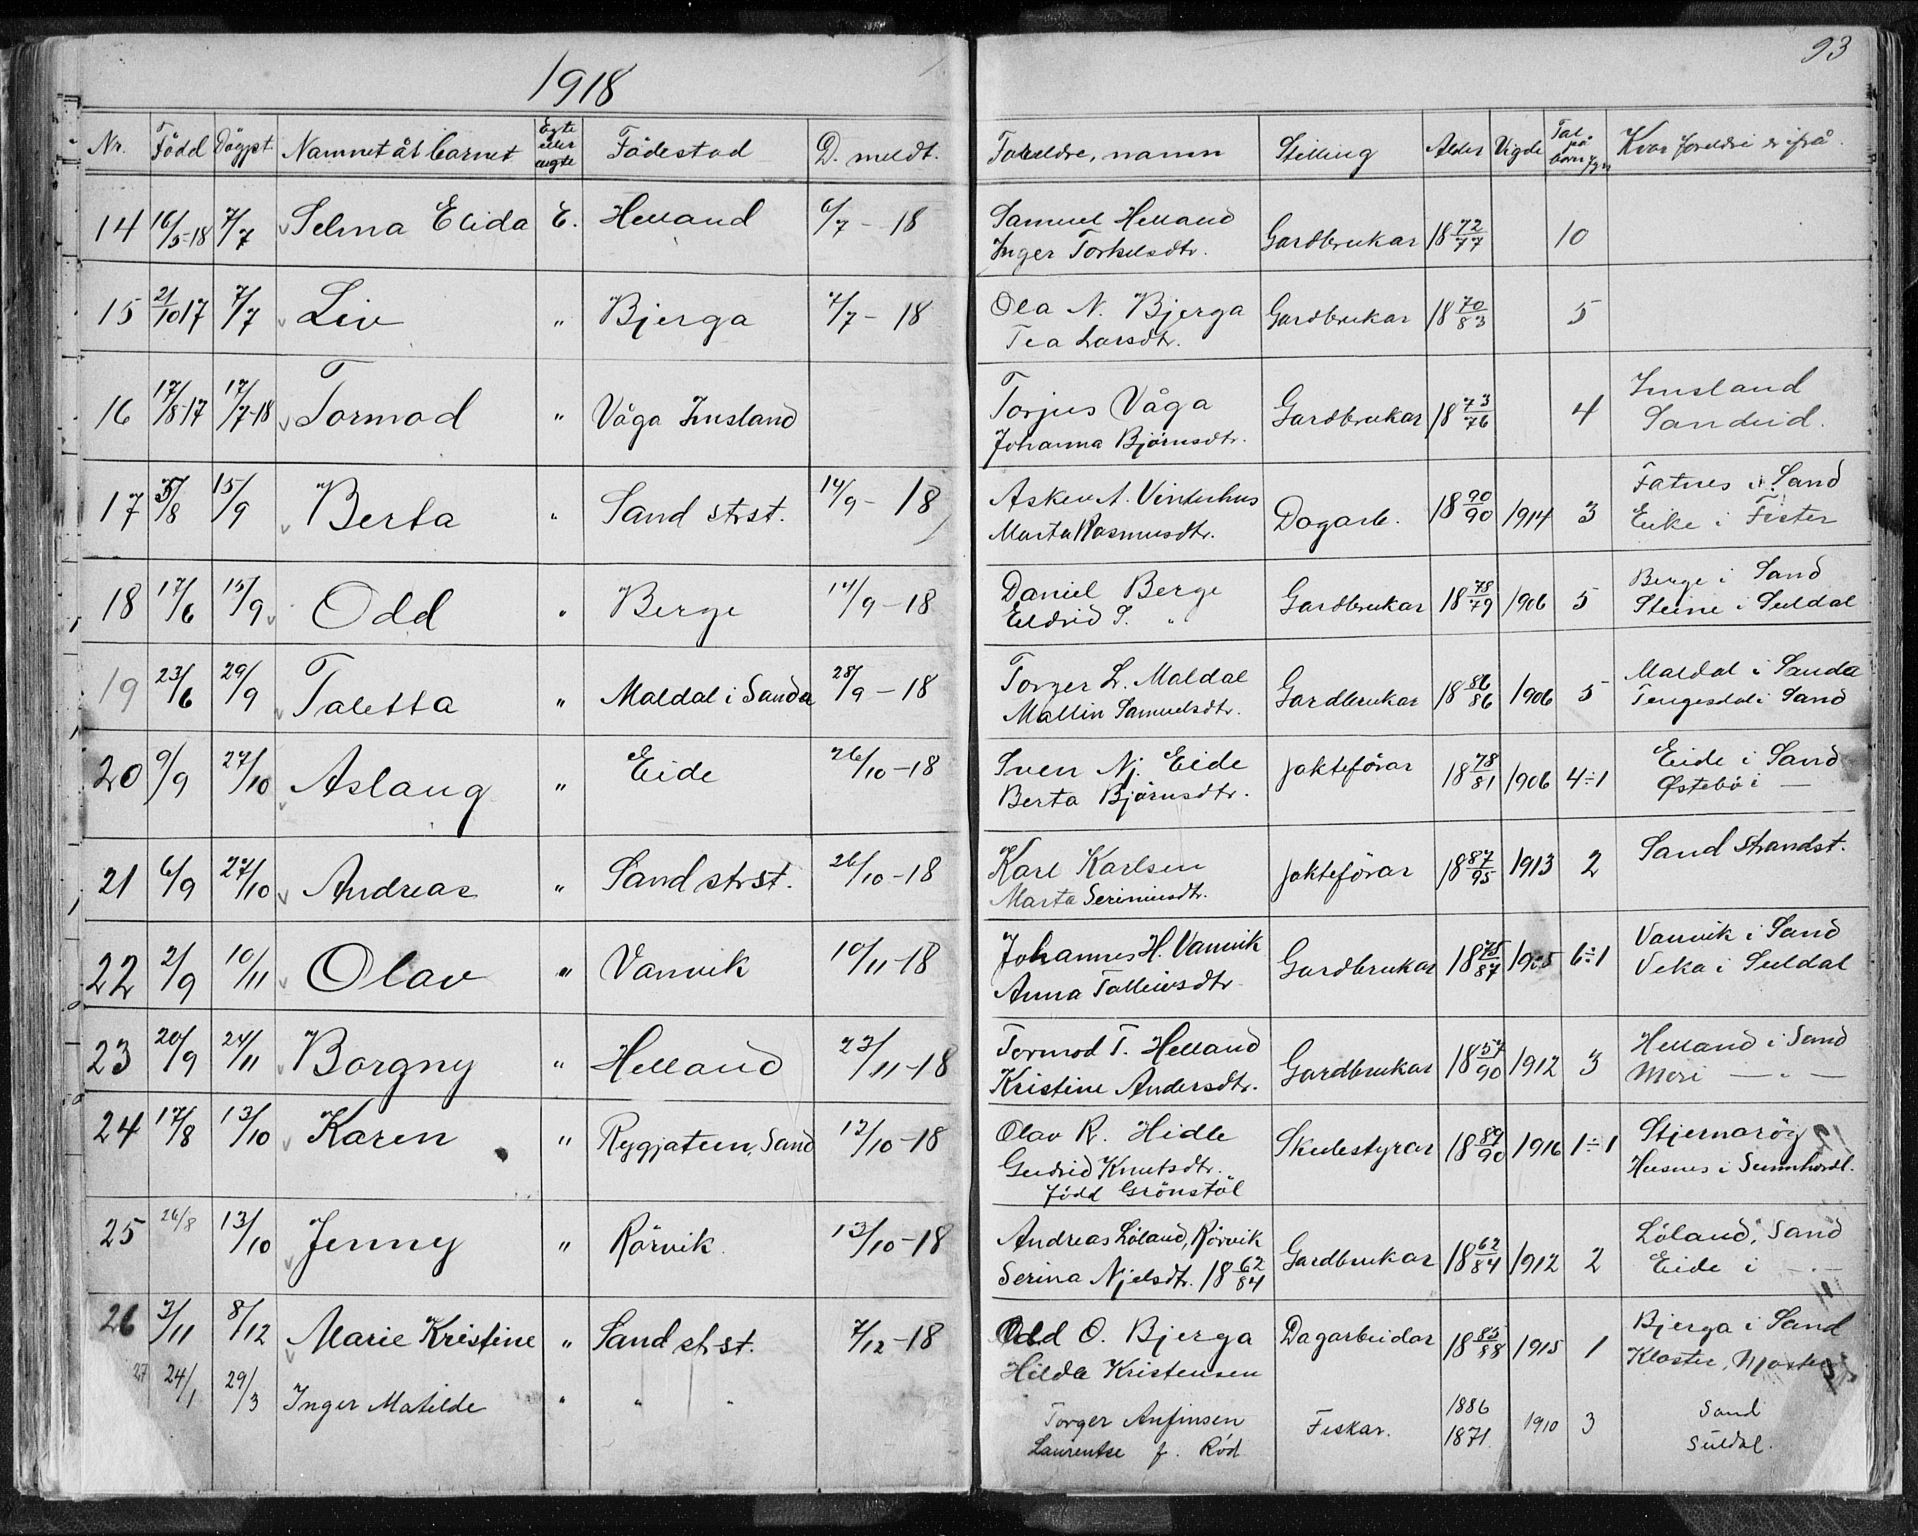 1918
93
Nr. Född Döypt Namnet åt barnet Egte eller uegte Födestad D. meldt. Foreldre, namn Stilling Alder Vigde Tal på born Kvar foreldre er ifrå.
14 16/5-18 7/7 Selma Elida E. Helland 6/7 - 18 Samuel Helland Gardbrukar 18 72/77 10
Inger Torkelsdtr.
15 21/10 17 7/7 Liv " Bjerga 7/7 - 18 Ola N. Bjerga Gardbrukar 18 70/83 5
Tea Larsdtr.
16 17/8-17 17/7-18 Tormod " Våga Imsland Torjus Våga Gardbrukar 18 73/76 4 Imsland
Johanna Björnsdtr. Sandeid.
17 5/8 15/9 Berta " Sand strst. 14/9 - 18 Asken A. Vinterhus Dagarb. 18 90/90 1914 3 Fatnes i Sand
Marta Rasmusdtr. Eike i Fister
18 17/6 15/9 Odd " Berge 14/9 - 18 Daniel Berge Gardbrukar 18 78/79 1906 5 Berge i Sand
Eldrid S. " Steine i Suldal
19 23/6 29/9 Taletta " Maldal i Sauda 28/9 - 18 Torger L. Maldal Gardbrukar 18 86/86 1906 5 Maldal i Sauda
Mallin Samuelsdtr. Tengesdal i Sand
20 9/9 27/10 Aslaug " Eide 26/10 - 18 Sven Nj. Eide jakteförar 18 78/81 1906 4÷1 Eide i Sand
Berta Björnsdtr. Østebö i —
21 6/9 27/10 Andreas " Sand strst. 26/10 - 18 Karl Karlsen jakteförar 18 87/95 1913 2 Sand strandst.
Marta Seriniusdtr.
22 2/9 10/11 Olav " Vanvik 10/11 - 18 Johannes H. Vanvik Gardbrukar 18 75/87 1905 6÷1 Vanvik i Sand
Anna Talleivsdtr. Veka i Suldal
23 20/9 24/11 Borgny " Helland 23/11 - 18 Tormod T. Helland Gardbrukar 18 57/90 1912 3 Helland i Sand
Kristine Andersdtr. Meri — " —
24 17/8 13/10 Karen " Rygjatun, Sand 12/10 - 18 Olav R. Hidle Skutestyrar 18 89/90 1916 1÷1 Stjernaröy
Gudrid Knutsdtr. Husnes i Sunnhordl.
född Grönstöl
25 26/8 13/10 Jenny " Rörvik 13/10 - 18 Andreas Löland, Rörvik Gardbrukar 18 62/84 1912 2 Löland i Sand
Serina Njelsdtr. 18 62/84 Eide i — " —
26 3/11 8/12 Marie Kristine " Sand strst. 7/12 - 18 Odd O. Bjerga Dagarbeidar 18 85/88 1915 1 Bjerga i Sand
Hilda Kristensen Kloster, Moster
27 24/1 29/3 Inger Matilde " " " Torger Anfinsen Fiskar. 1886 1910 3 Sand
Laurentse f. Röd 1871 Suldal.